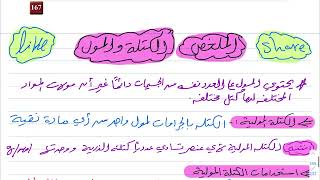 167
like الملخص الكتلة والمول share
يحتوي المول على العدد نفسه من الجسيمات دائمًا غير أنه مولات المواد
المختلفة لها كتل مختلفة.
الكتلة المولية: الكتلة بالجرامات لمول واحد من أي مادة نقية
الكتلة المولية لأي عنصر تساوي عدديًا كتلته الذرية ووحدتها g/mol
استخدامات الكتلة المولية